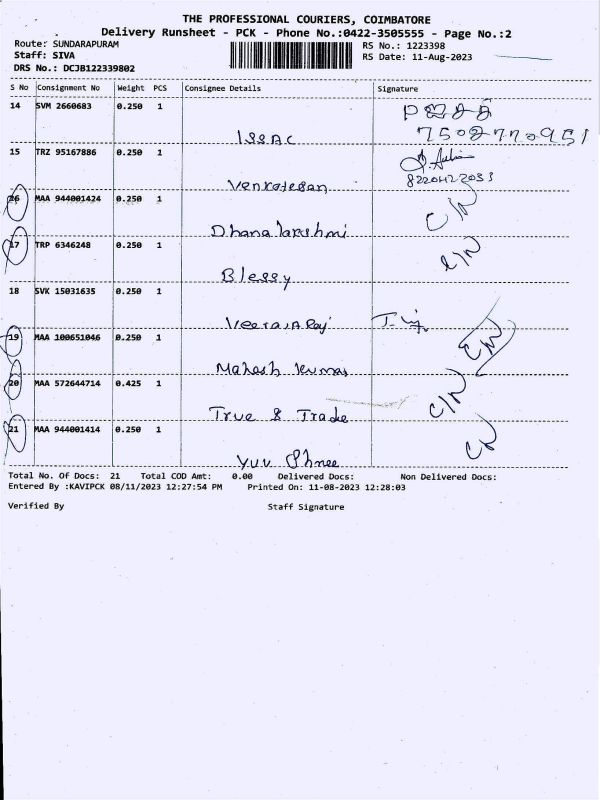 THE PROFESSIONAL COURIERS, COIMBATORE
Delivery Runsheet - PCK - Phone No.:0422-3505555 - Page No.:2
Route: SUNDARAPURAM
RS No.: 1223398
Staff: SIVA
RS Date: 11-Aug-2023
DRS No.: DCJB122339802
S No Consignment No Weight PCS Consignee Details Signature
14 SVM 2660683 0.250 1
ISSAC 7502770951
15 TRZ 95167886 0.250 1
Venkatesan
16 MAA 944001424 0.250 1 C/N
Dhanalakshmi
17 TRP 6346248 0.250 1 C/N
Blessy
18 SVK 15031635 0.250 1
Veeraraj
19 MAA 100651046 0.250 1 C/N
Mahesh Kumar
20 MAA 572644714 0.425 1 C/N
True & Trade
21 MAA 944001414 0.250 1 C/N
Yuv Shree
Total No. Of Docs: 21 Total COD Amt: 0.00 Delivered Docs: Non Delivered Docs:
Entered By :KAVIPCK 08/11/2023 12:27:54 PM Printed On: 11-08-2023 12:28:03
Verified By Staff Signature